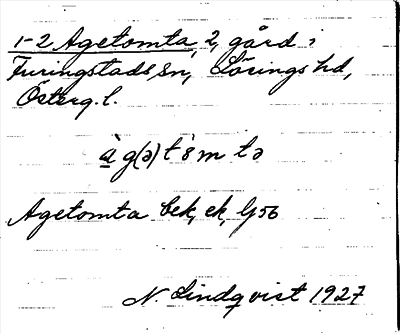 1-2 Agetomta, 2, gård i
Furingstads sn, Lösings hd,
Österg. l.
à g(ə) t ò m t ə
Agetomta bek, ek, G56
N. Lindqvist 1927